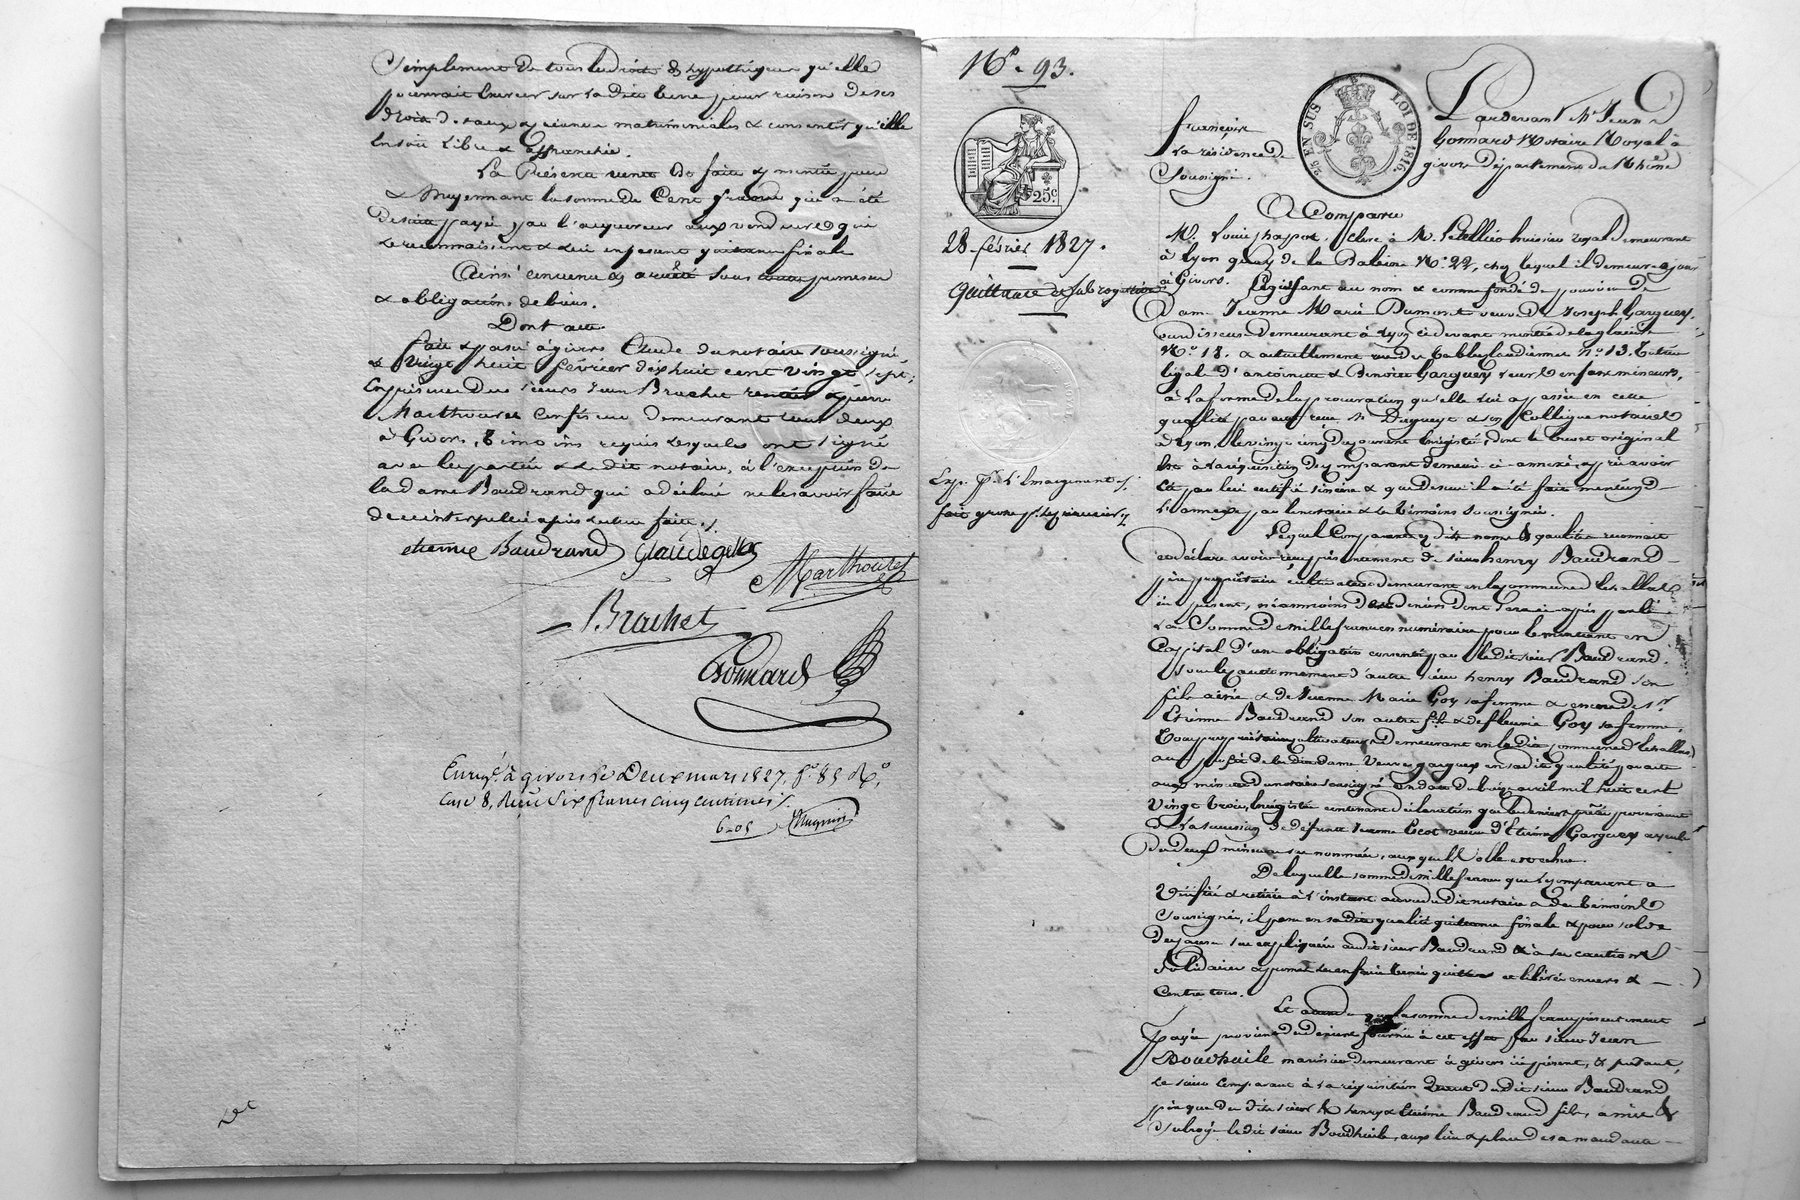 Simplement de tous les droits & hypothèques qu'elle
pourrait Exercer sur la dite terre pour raison de ses
droits matrimoniales & consent qu'elle
En soit libre & affranchie.
La Présente vente Est faite & moyennant
& moyennant la somme de Cent francs qui a été
payé par l'acquereur aux vendeurs qui
Le reconnaissent & lui en passent quittance finale
Ainsi convenu & arrêté sous promesses
& obligations de biens.
Dont acte
fait & passé à givors Etude du notaire soussigné
Le Vingt huit fevrier dix huit cent vingt sept;
En présence des sieurs Jean Brachet rentier & pierre
Marthouret confiseur demeurant tous deux
à Givors, Témoins requis lesquels ont signé
avec les parties & le dit notaire, à l'exception de
la dame Baudrand qui a déclaré ne le savoir faire
de ce interpellée après lecture faite ./.
etienne Baudrand
Marthouret
Brachet
Gonnard
Enregé. à givors le Deux mars 1827, fo. 85 Ro.
case 8, Reçu Six francs cinq centimes ./.
6-05
No. 93.
25 EN SUS
LOI DE 1816.
25c.
28 février 1827.
Quittance et subrogation
fait grosse
francoise
La résidence de
Soussigné.
Pardevant Me Jean
Gonnard Notaire Royal à
givors département du Rhône
A Comparu
M. Louis Chapot, clerc à M. Letellier huissier royal demeurant
à Lyon quay de la Baleine No. 22, chez lequel il demeure
à Givors. Legissant au nom & comme fondé de pouvoir de
Dame Jeanne Marie Dumont veuve de Joseph Garguey,
demeurant à Lyon ci devant montée de la glacière
No. 18. & actuellement No. 13. Tutrice
légal d'antoinette & Benoite Garguey leurs enfans mineurs,
à la forme de la procuration qu'elle lui a passée en cette
qualité pardevant Me Dugueyt & son Collègue notaires
à Lyon, le vingt cinq du courant Enregistré, dont le brevet original
Est à la réquisition du comparant demeuré ci-annexé, après avoir
été par lui certifié sincère & que dessus il a été fait mention de
L'annexe par le notaire & les témoins soussignés.
Lequel Comparant es dits noms & qualités reconnait
& déclare avoir reçu présentement de sieur henry Baudrand
père propriétaire cultivateur demeurant en la commune d'Echallas
ici présent, néanmoins des deniers dont sera ci après parlé
La Somme de mille francs en numéraire pour le montant en
Capital d'une obligation consentie par le dit sieur Baudrand,
sous le cautionnement d'autre sieur henry Baudrand son
fils ainé & de Jeanne Marie Goy sa femme & encore de sr.
Etienne Baudrand son autre fils & de fleurie Goy sa femme,
Tous propriétaires cultivateurs demeurant en la dite commune d'Echallas,
au profit de la dite dame veuve Garguey en sa dite qualité
aux minutes du notaire soussigné En date du avril mil huit cent
Vingt trois, Enregistré contenant déclaration que les deniers prêtés provenaient
de la succession de défunte Jeanne Ecot veuve d'Etienne Garguey ayeule
des deux mineures sus nommées, auxquelles elle est échue.
De laquelle somme de mille francs que le comparant a
Vérifiée & retirée à l'instant au vu du dit notaire & des témoins
Soussignés, il passe en sa dite qualité quittance finale & pour solde
des causes sus expliquées au dit sieur Baudrand & à ses cautions
Solidaires & promet les en faire tenir quittes et libérés envers &
Contre tous.
la somme de mille francs présentement
payée provient de deniers fournis à cet effet par sieur Jean
Bouchaile marinier demeurant à givors ici présent, & partant,
Le sieur comparant à la réquisition du dit sieur Baudrand
père que des dits sieurs henry & Etienne Baudrand fils, a mis &
Subrogé le dit sieur Bouchaile, aux lieu & place de sa mandante